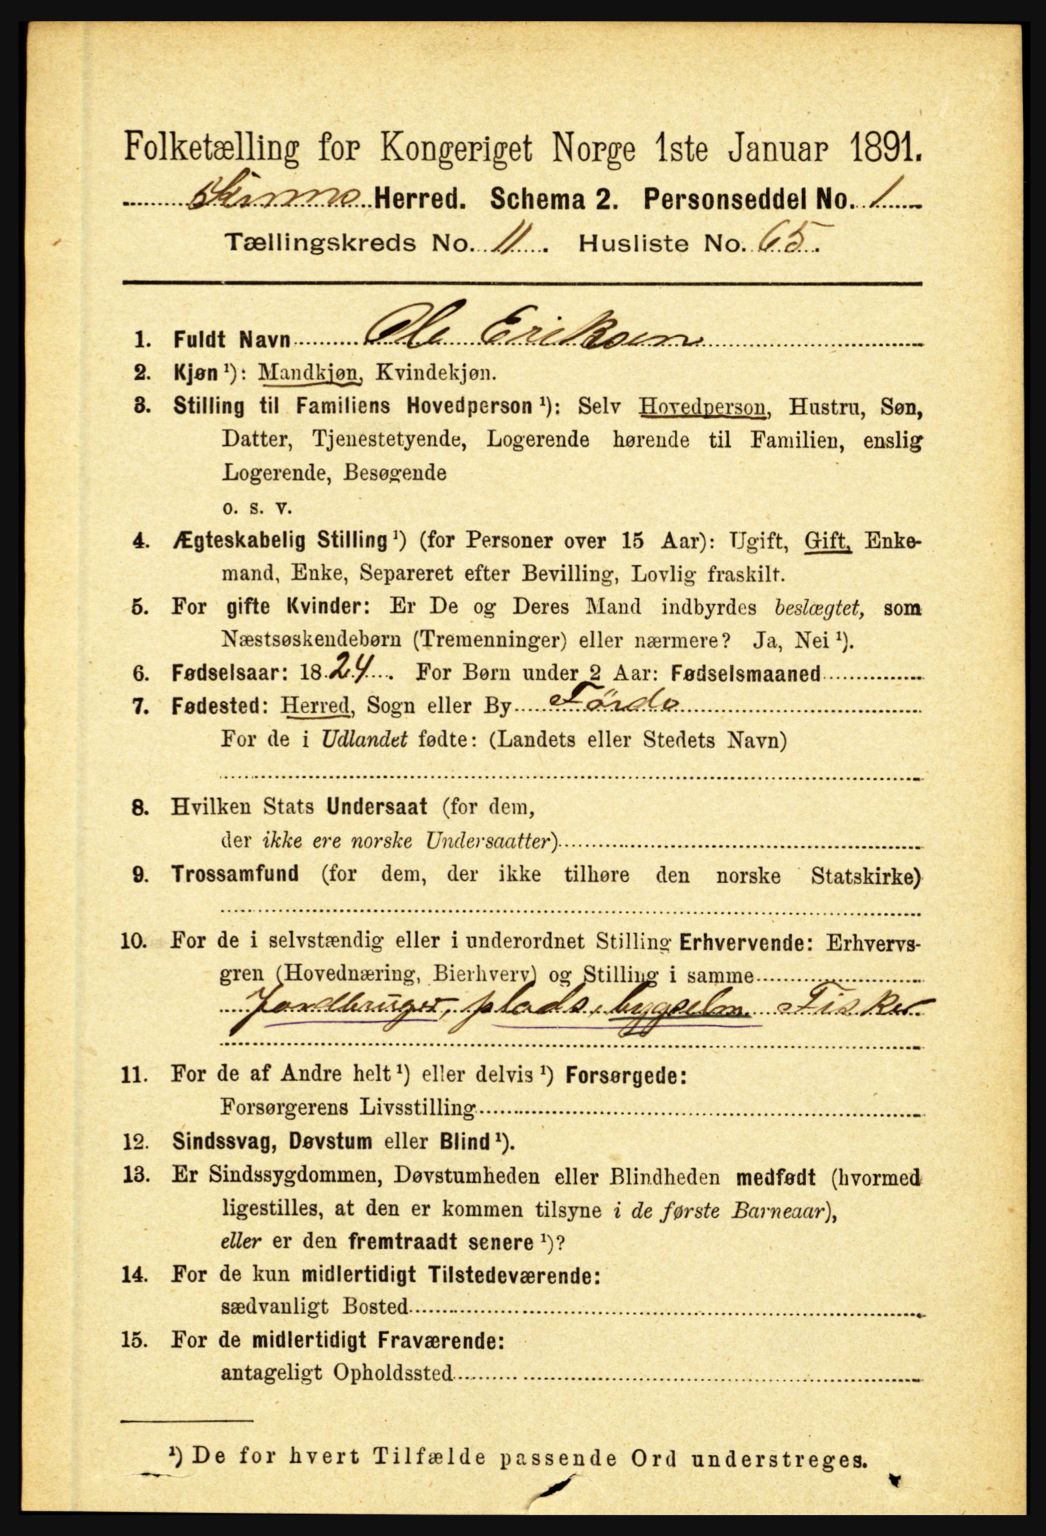 Folketælling for Kongeriget Norge 1ste Januar 1891.
Kinns Herred. Schema 2. Personseddel No. 1
Tællingskreds No. 11. Husliste No. 65.
1. Fuldt Navn Ole Eriksen
2. Kjøn ¹): Mandkjøn, Kvindekjøn.
3. Stilling til Familiens Hovedperson ¹): Selv Hovedperson, Hustru, Søn,
Datter, Tjenestetyende, Logerende hørende til Familien, enslig
Logerende, Besøgende
o. s. v.
4. Ægteskabelig Stilling ¹) (for Personer over 15 Aar): Ugift, Gift, Enke-
mand, Enke, Separeret efter Bevilling, Lovlig fraskilt.
5. For gifte Kvinder: Er De og Deres Mand indbyrdes beslægtet, som
Næstsøskendebørn (Tremenninger) eller nærmere? Ja, Nei ¹).
6. Fødselsaar: 1824. For Børn under 2 Aar: Fødselsmaaned
7. Fødested: Herred, Sogn eller By Førde
For de i Udlandet fødte: (Landets eller Stedets Navn)
8. Hvilken Stats Undersaat (for dem,
der ikke ere norske Undersaatter)
9. Trossamfund (for dem, der ikke tilhøre den norske Statskirke)
10. For de i selvstændig eller i underordnet Stilling Erhvervende: Erhvervs-
gren (Hovednæring, Bierhverv) og Stilling i samme
Jordbruger, plads, bygselm. Fisker
11. For de af Andre helt ¹) eller delvis ¹) Forsørgede:
Forsørgerens Livsstilling
12. Sindssvag, Døvstum eller Blind ¹).
13. Er Sindssygdommen, Døvstumheden eller Blindheden medfødt (hvormed
ligestilles, at den er kommen tilsyne i de første Barneaar),
eller er den fremtraadt senere ¹)?
14. For de kun midlertidigt Tilstedeværende:
sædvanligt Bosted
15. For de midlertidigt Fraværende:
antageligt Opholdssted
¹) De for hvert Tilfælde passende Ord understreges.